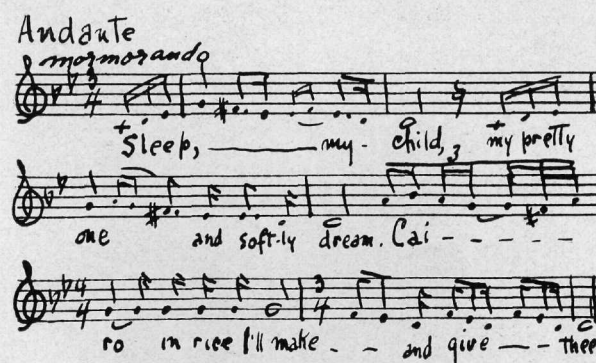 Andante
mormorando
3
4
Sleep, my child, my pretty
3
one and soft-ly dream. Cai
4 3
4 4
ro in rice I'll make and give thee